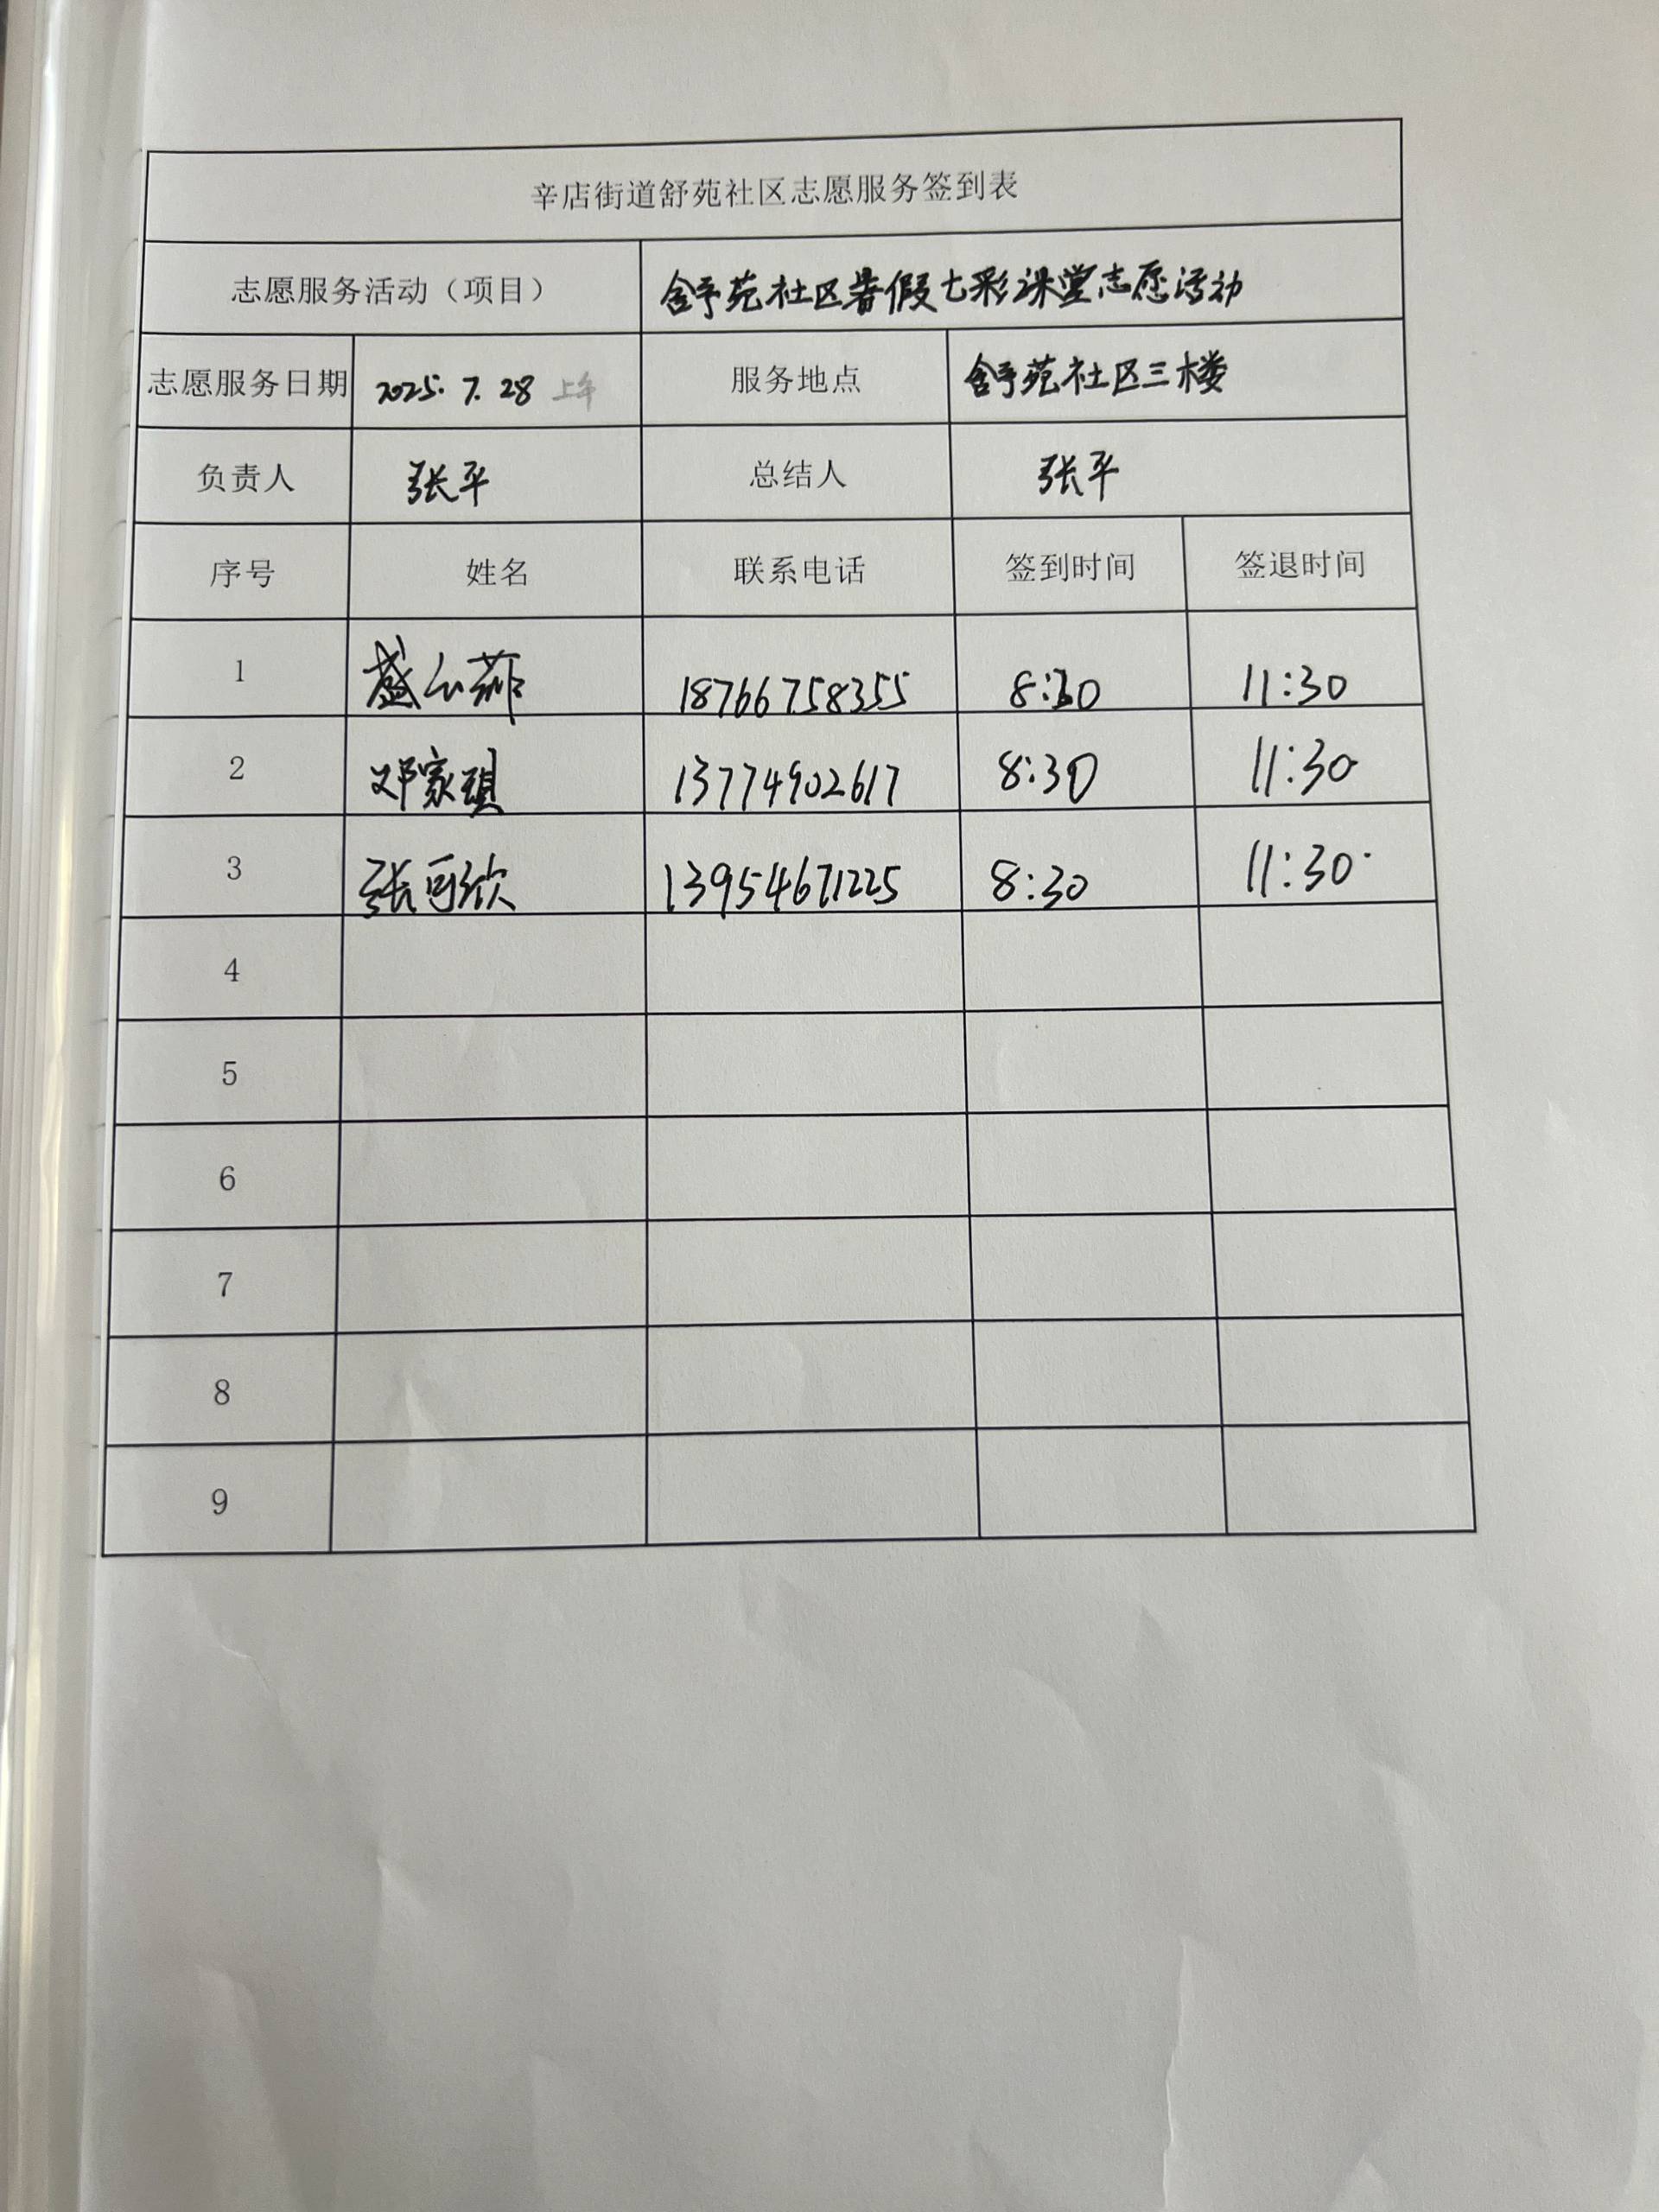 辛店街道舒苑社区志愿服务签到表
志愿服务活动（项目） 舒苑社区暑假七彩课堂志愿活动
志愿服务日期 2025.7.28 上午 服务地点 舒苑社区三楼
负责人 张平 总结人 张平
序号 姓名 联系电话 签到时间 签退时间
1 18766758355 8:30 11:30
2 邓家琪 13774902617 8:30 11:30
3 张可欣 13954671225 8:30 11:30
4
5
6
7
8
9